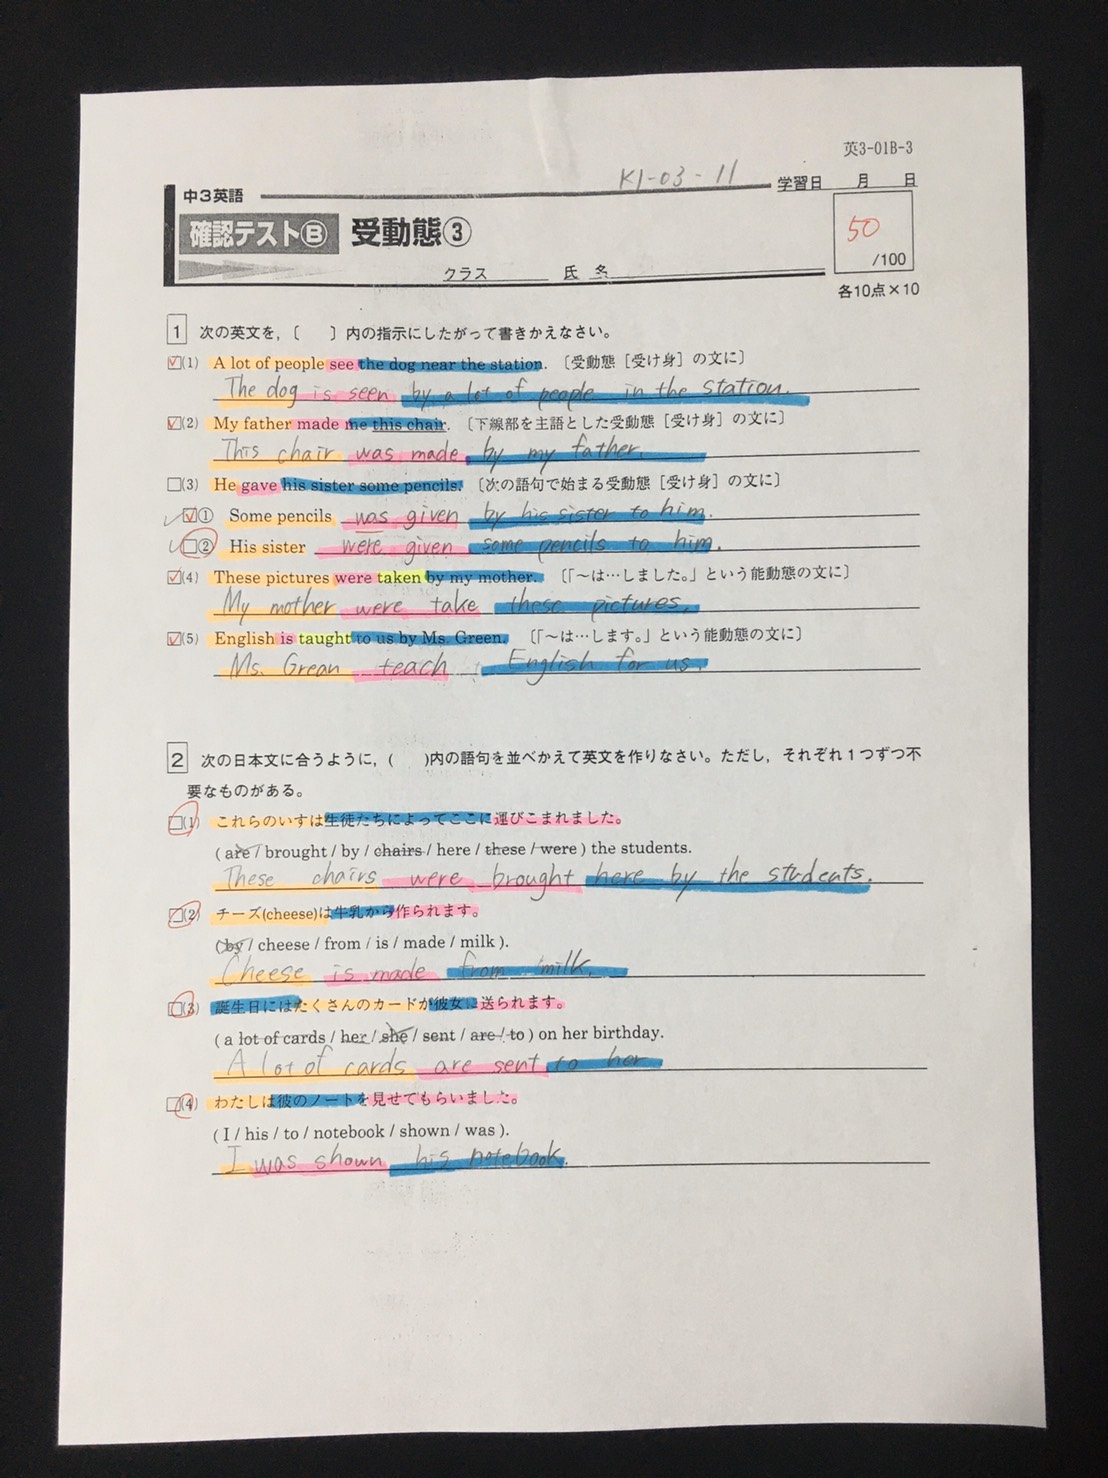 英3-01B-3
K1-03-11 学習日 月 日
中3英語
確認テストⒷ 受動態③
50
/100
クラス 氏名
各10点×10
1 次の英文を，〔 〕内の指示にしたがって書きかえなさい。
(1) A lot of people see the dog near the station. 〔受動態［受け身］の文に〕
The dog is seen by a lot of people in the station.
(2) My father made me this chair. 〔下線部を主語とした受動態［受け身］の文に〕
This chair was made by my father.
(3) He gave his sister some pencils. 〔次の語句で始まる受動態［受け身］の文に〕
① Some pencils was given by his sister to him.
② His sister were given some pencils to him.
(4) These pictures were taken by my mother. 〔「～は…しました。」という能動態の文に〕
My mother were take these pictures.
(5) English is taught to us by Ms. Green. 〔「～は…します。」という能動態の文に〕
Ms. Grean teach English for us.
2 次の日本文に合うように，( )内の語句を並べかえて英文を作りなさい。ただし，それぞれ1つずつ不
要なものがある。
(1) これらのいすは生徒たちによってここに運びこまれました。
( are / brought / by / chairs / here / these / were ) the students.
These chairs were brought here by the students.
(2) チーズ(cheese)は牛乳から作られます。
(by / cheese / from / is / made / milk ).
Cheese is made from milk.
(3) 誕生日にはたくさんのカードが彼女に送られます。
( a lot of cards / her / she / sent / are / to ) on her birthday.
A lot of cards are sent to her
(4) わたしは彼のノートを見せてもらいました。
( I / his / to / notebook / shown / was ).
I was shown his notebook.